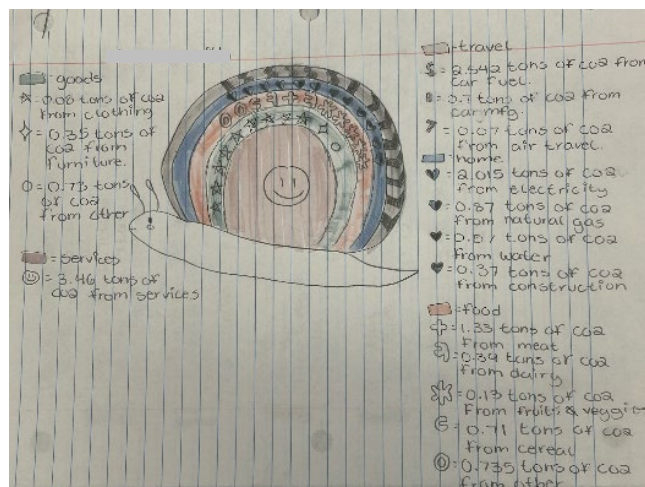 = goods
= 0.08 tons of co2
from clothing
= 0.35 tons of
co2 from
furniture.
= 0.73 tons
of co2
from other
= services
= 3.46 tons of
co2 from services
= travel
= 2.542 tons of co2 from
car fuel.
= 0.7 tons of co2 from
car mfg.
= 0.07 tons of co2
from air travel.
= home
= 2.015 tons of co2
from electricity
= 0.87 tons of co2
from natural gas
tons of co2
from water
= 0.37 tons of co2
from construction
= food
= 1.33 tons of co2
from meat
tons of co2
from dairy
= 0.13 tons of co2
from fruits &
= 0.71 tons of co2
from cereal
= 0.735 tons of co2
from other